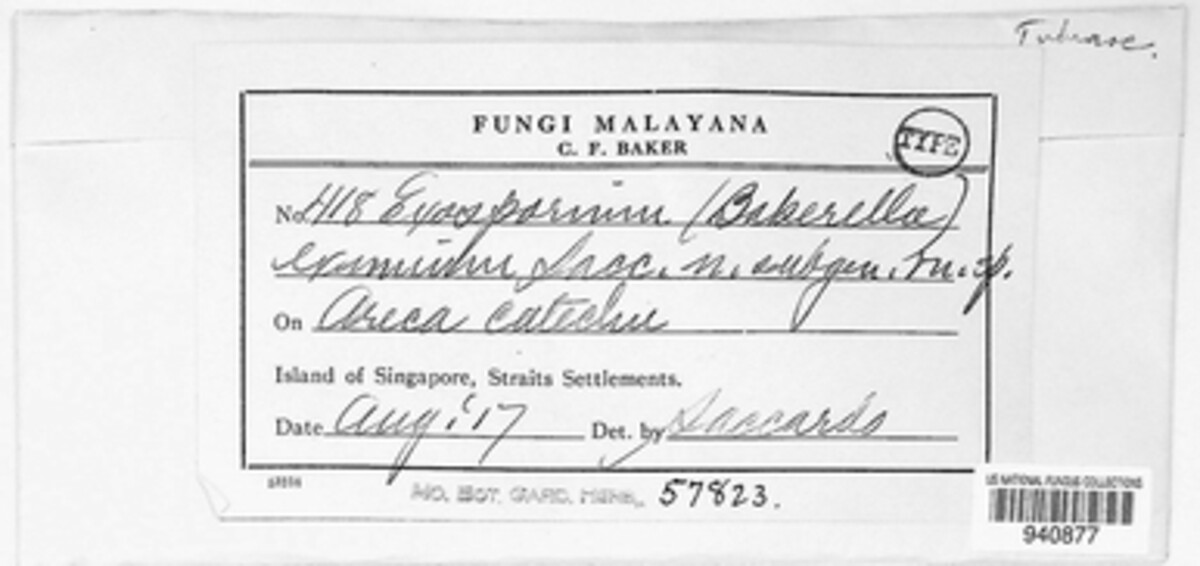 FUNGI MALAYANA
C. F. BAKER
TYPE
No. 418 Exosporium (Bakerella)
eximium Sacc. n. subgen. & n. sp.
On Areca catechu
Island of Singapore, Straits Settlements.
Date Aug. '17 Det. by Saccardo
MO. BOT. GARD. HERB. 57823.
US NATIONAL FUNGUS COLLECTIONS
940877